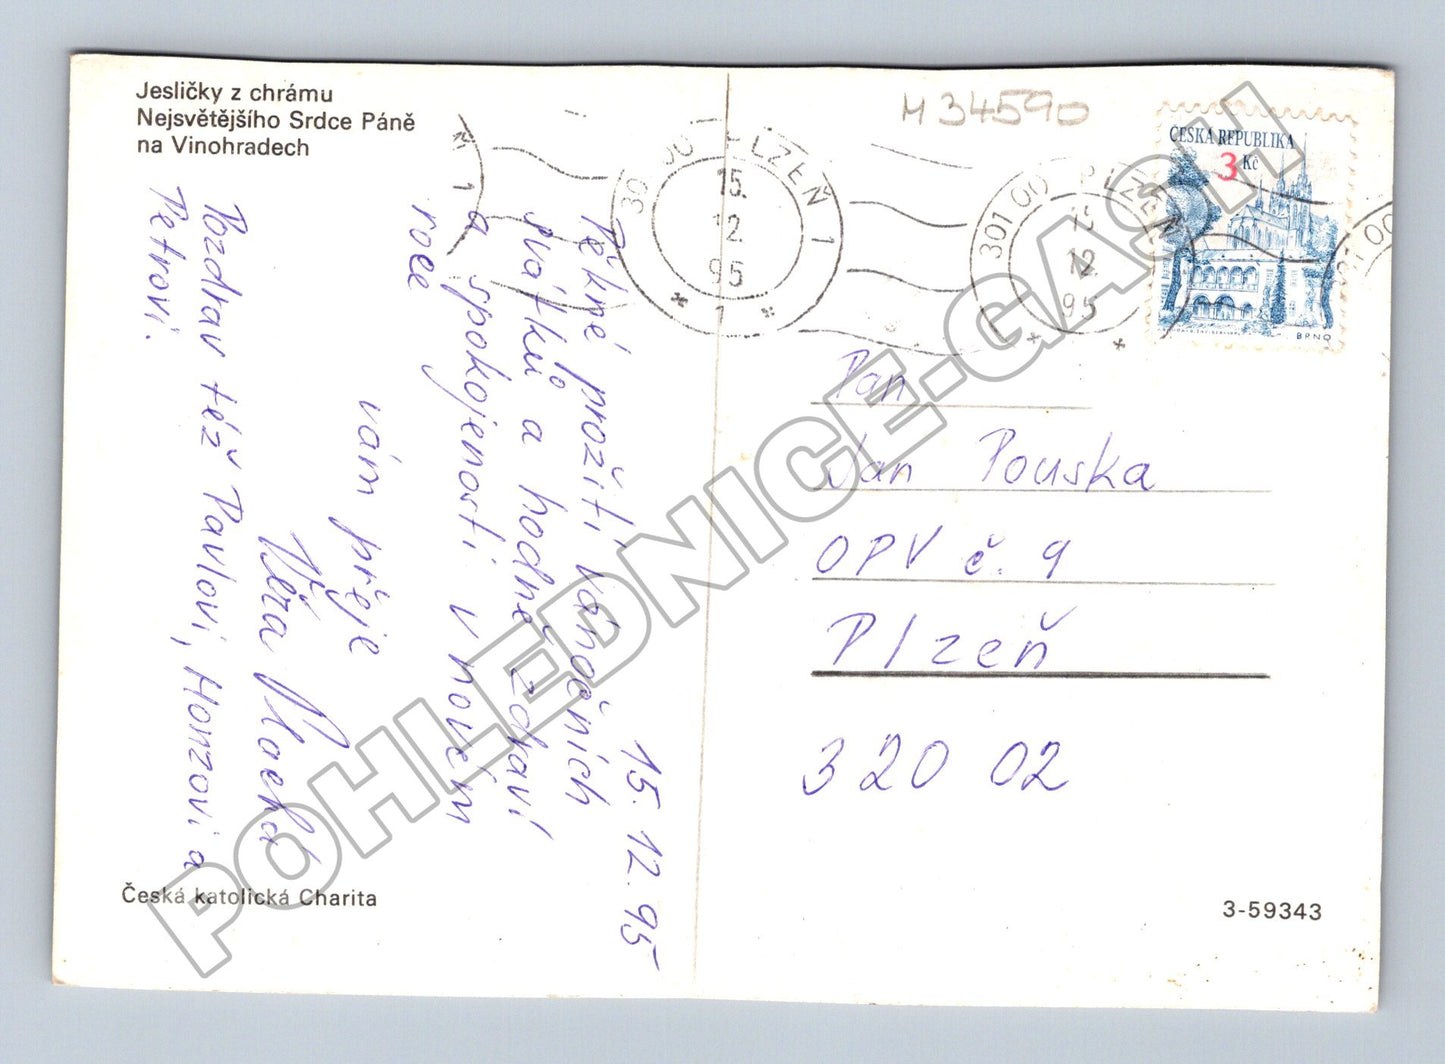 Jesličky z chrámu
Nejsvětějšího Srdce Páně
na Vinohradech
M34590
ČESKÁ REPUBLIKA
3 Kč
BRNO
301 00 PLZEŇ 1
15.
12.
95
* 1 *
301 00 PLZEŇ 1
15.
12.
95
15. 12. 95
Pěkné prožití vánočních
svátků a hodně zdraví
a spokojenosti v novém
roce
vám přeje
Věra Machd
Pozdrav též Pavlovi, Honzovi a
Petrovi.
Pan
Jan Pouska
OPV č. 9
Plzeň
320 02
Česká katolická Charita
3-59343
POHLEDNICE.GASH